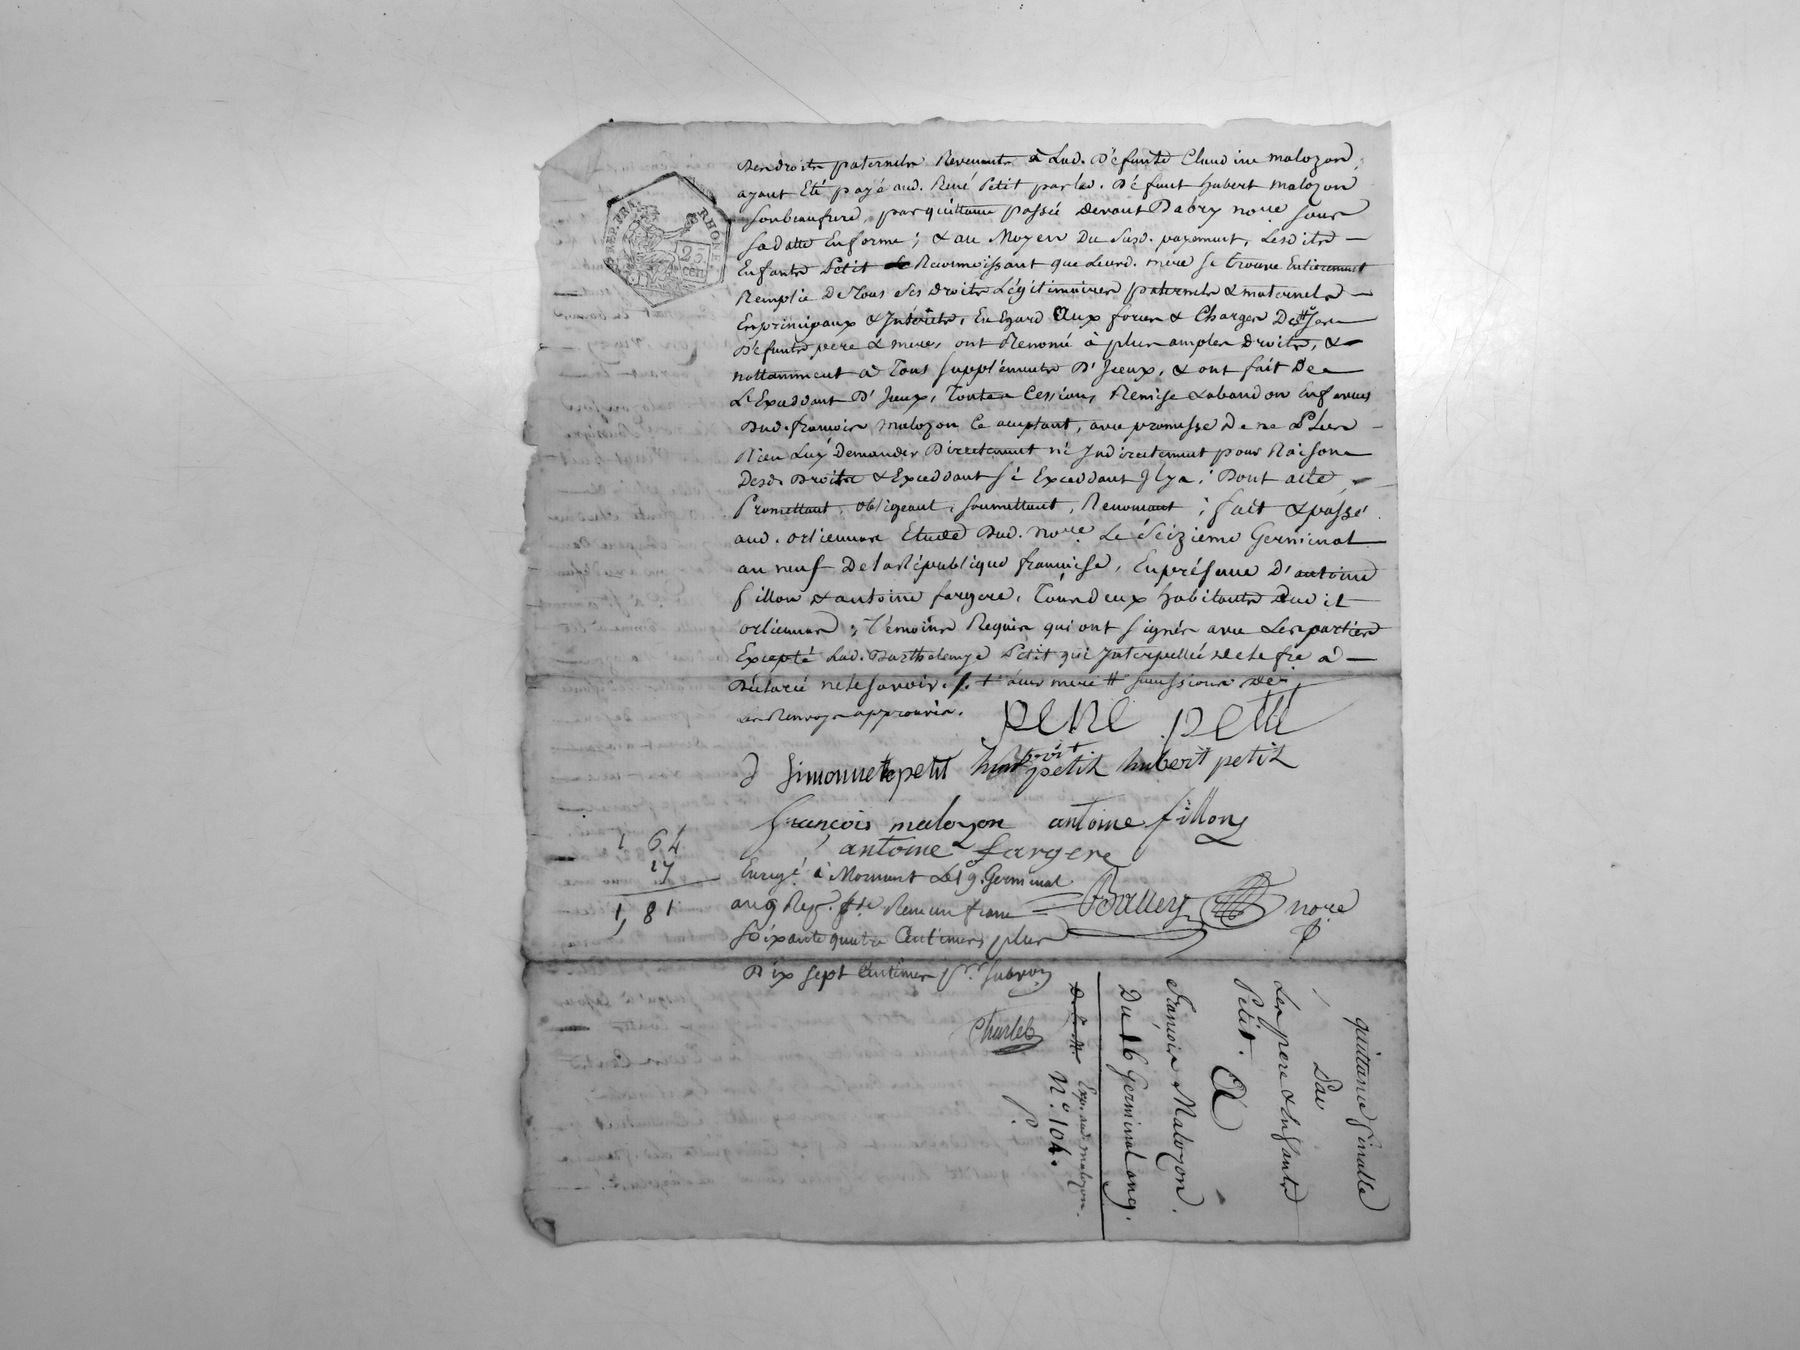 Des droits paternels Revenants à Lad. Défunte Claudine malozon,
ayant Eté payé aud. René Petit par led. Défunt hubert malozon
son beaufrere, par quittance passée devant Dabry nore sous
sa datte En forme; & au Moyen Du Susd. payement, Lesdits
Enfants Petit Reconnoissant que Leurd. mère se trouve Entierement
Remplie De Tous ses Droits Légitimaires paternels & maternels
En principaux & Intérêts, En Egard Aux forces & Charges Des
Défunts pere & mere, ont Renoncé à plus amples Droits, &
nottamment à Tous suppléments D'Iceux, & ont fait De
L'Exceddant D'Iceux, Toutes Cessions, Remise & abandon En faveur
Dud. francois malozon Ce acceptant, avec promesse De ne Plus
Rien Luy Demander Directement ni Indirectement pour Raison
Desd. Droits & Exceddant si Exceddant Il y a; Dont acte,
Promettant, obligeant, soumettant, Renonçant; fait & passé
aud. orliennas Etude Dud. nore. Le Seizieme Germinal
an neuf De la République françoise, En présence D'antoine
fillon & antoine fargere, Tous deux habitants Dud it
orliennas; Témoins Requis qui ont signés avec Les parties
Excepté Lad. Barthelemye Petit qui Interpellée De le fre a
Déclaré ne le savoir. # Leur mere # successions des
Les Renvoys approuvés.
REnE pEtit
Simonnet petit benoit petit hubert petit
françois malozon antoine fillon
antoine fargere
1 64
17
1, 81
Enregé. à Mornant Le 19. Germinal
an 9 Reç. Un franc
Soixante quatre Centimes plus
Dix sept Centimes pr. Subvon
Balley nore
Charlet
quittance finalle
Par
Les pere & Enfants
Petit.
A
François Malozon.
Du 16 Germinal an 9.
Exp. aud. malozon.
N.º 104.
RHONE
25
CEN